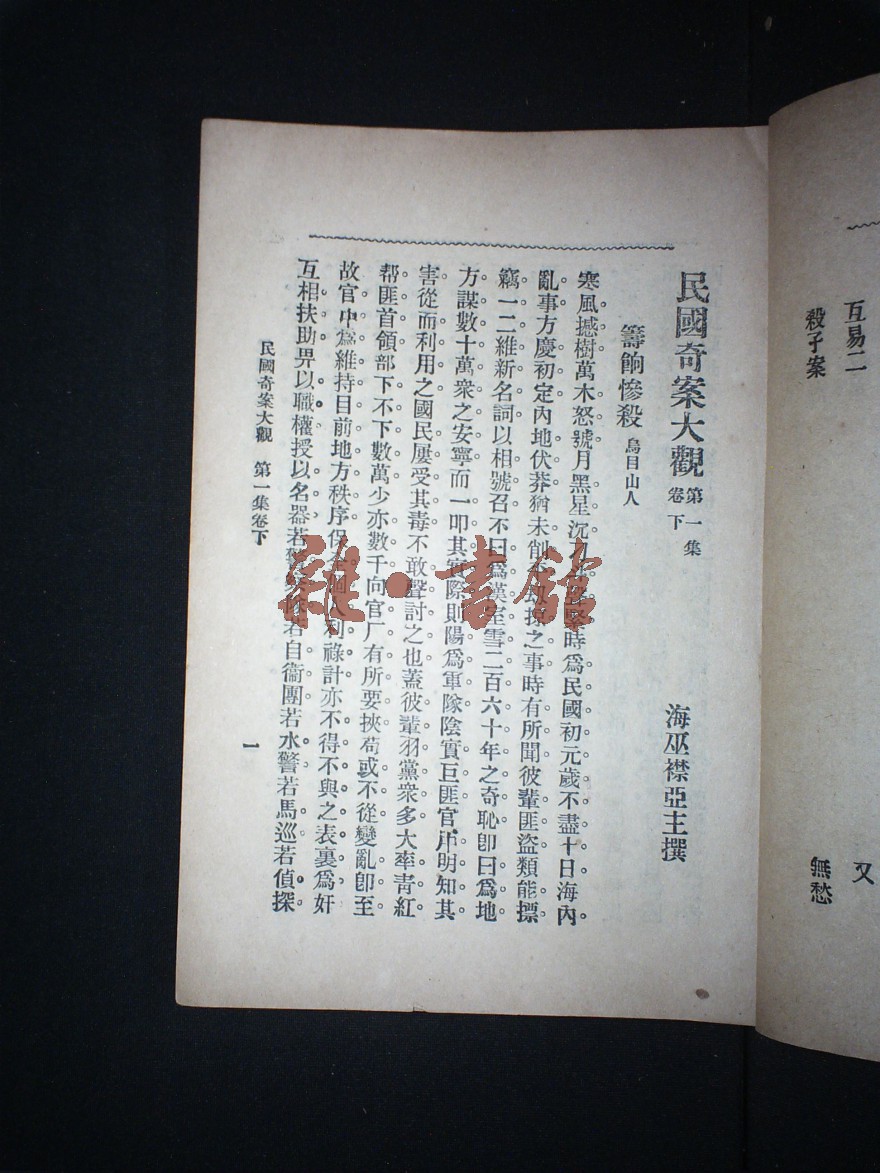 互易二 又
殺子案 無愁
民國奇案大觀 第一集
卷下
海巫襟亞主撰
籌餉慘殺 烏目山人
寒風撼樹萬木怒號月黑星沉時爲民國初元歲不盡十日海內
亂事方慶初定內地伏莽猶未削劫掠之事時有所聞彼輩匪盜類能摽
竊一二維新名詞以相號召不曰爲漢室雪二百六十年之奇恥卽曰爲地
方謀數十萬衆之安寧而一叩其實際則陽爲軍隊陰實巨匪官中明知其
害從而利用之國民屢受其毒不敢聲討之也蓋彼輩羽黨衆多大率靑紅
帮匪首領部下不下數萬少亦數千向官厂有所要挾苟或不從變亂卽至
故官中爲維持目前地方秩序保全個人利祿計亦不得不與之表裏爲奸
互相扶助畀以職權授以名器若隊若自衞團若水警若馬巡若偵探
民國奇案大觀 第一集卷下
一
雜·書館